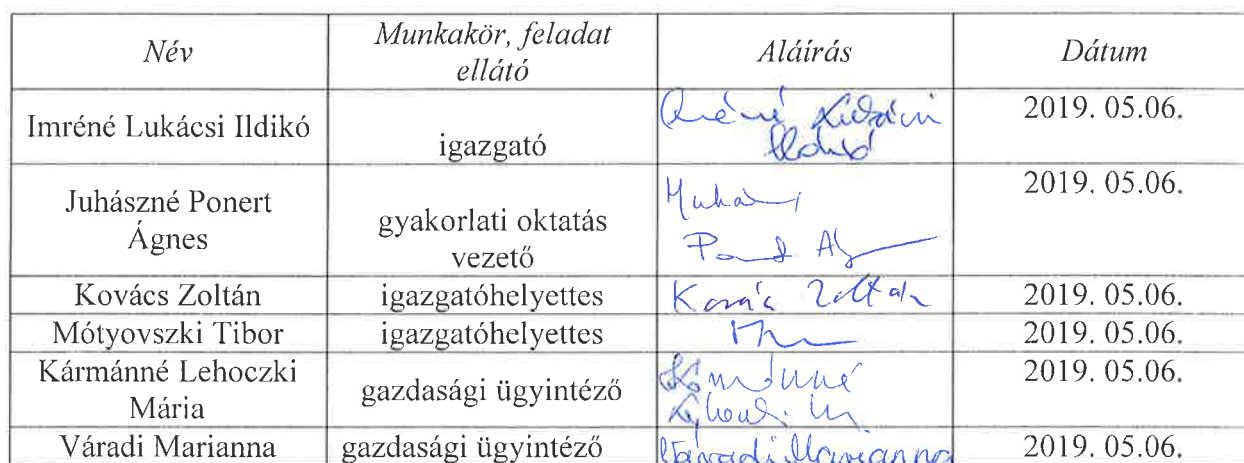 Név Munkakör, feladat ellátó Aláírás Dátum
Imréné Lukácsi Ildikó igazgató 2019. 05.06.
Juhászné Ponert Ágnes gyakorlati oktatás vezető 2019. 05.06.
Kovács Zoltán igazgatóhelyettes Kovács Zoltán 2019. 05.06.
Mótyovszki Tibor igazgatóhelyettes 2019. 05.06.
Kármánné Lehoczki Mária gazdasági ügyintéző Kármánné 2019. 05.06.
Váradi Marianna gazdasági ügyintéző Váradi Marianna 2019. 05.06.